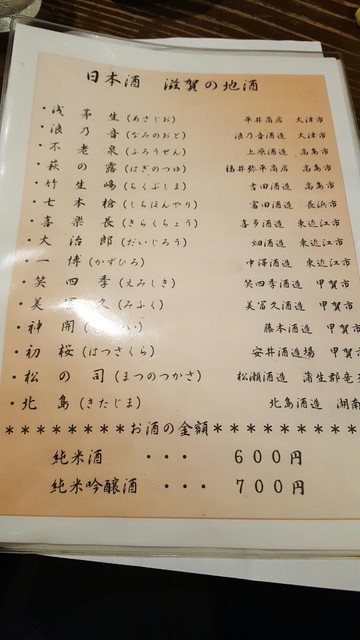 日本酒 滋賀の地酒
・浅茅生(あさじお) 平井商店 大津市
・浪乃音(なみのおと) 浪乃音酒造 大津市
・不老泉(ふろうせん) 上原酒造 高島市
・萩の露(はぎのつゆ) 福井弥平商店 高島市
・竹生嶋(ちくぶしま) 吉田酒造 高島市
・七本槍(しちほんやり) 富田酒造 長浜市
・喜楽長(きらくちょう) 喜多酒造 東近江市
・大治郎(だいじろう) 畑酒造 東近江市
・一博(かずひろ) 中澤酒造 東近江市
・笑四季(えみしき) 笑四季酒造 甲賀市
・美冨久(みふく) 美冨久酒造 甲賀市
・神開( い) 藤本酒造 甲賀市
・初桜(はつざくら) 安井酒造場 甲賀市
・松の司(まつのつかさ) 松瀬酒造 蒲生郡竜
・北島(きたじま) 北島酒造 湖南
********お酒の金額**********
純米酒 ・・・ 600円
純米吟醸酒 ・・・ 700円